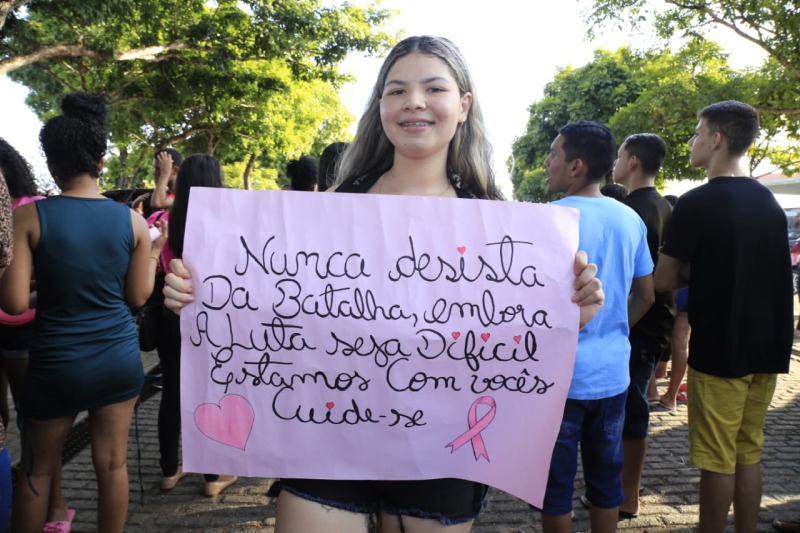 Nunca desista
Da Batalha, embora
A Luta seja Difícil
Estamos Com vocês
Cuide-se